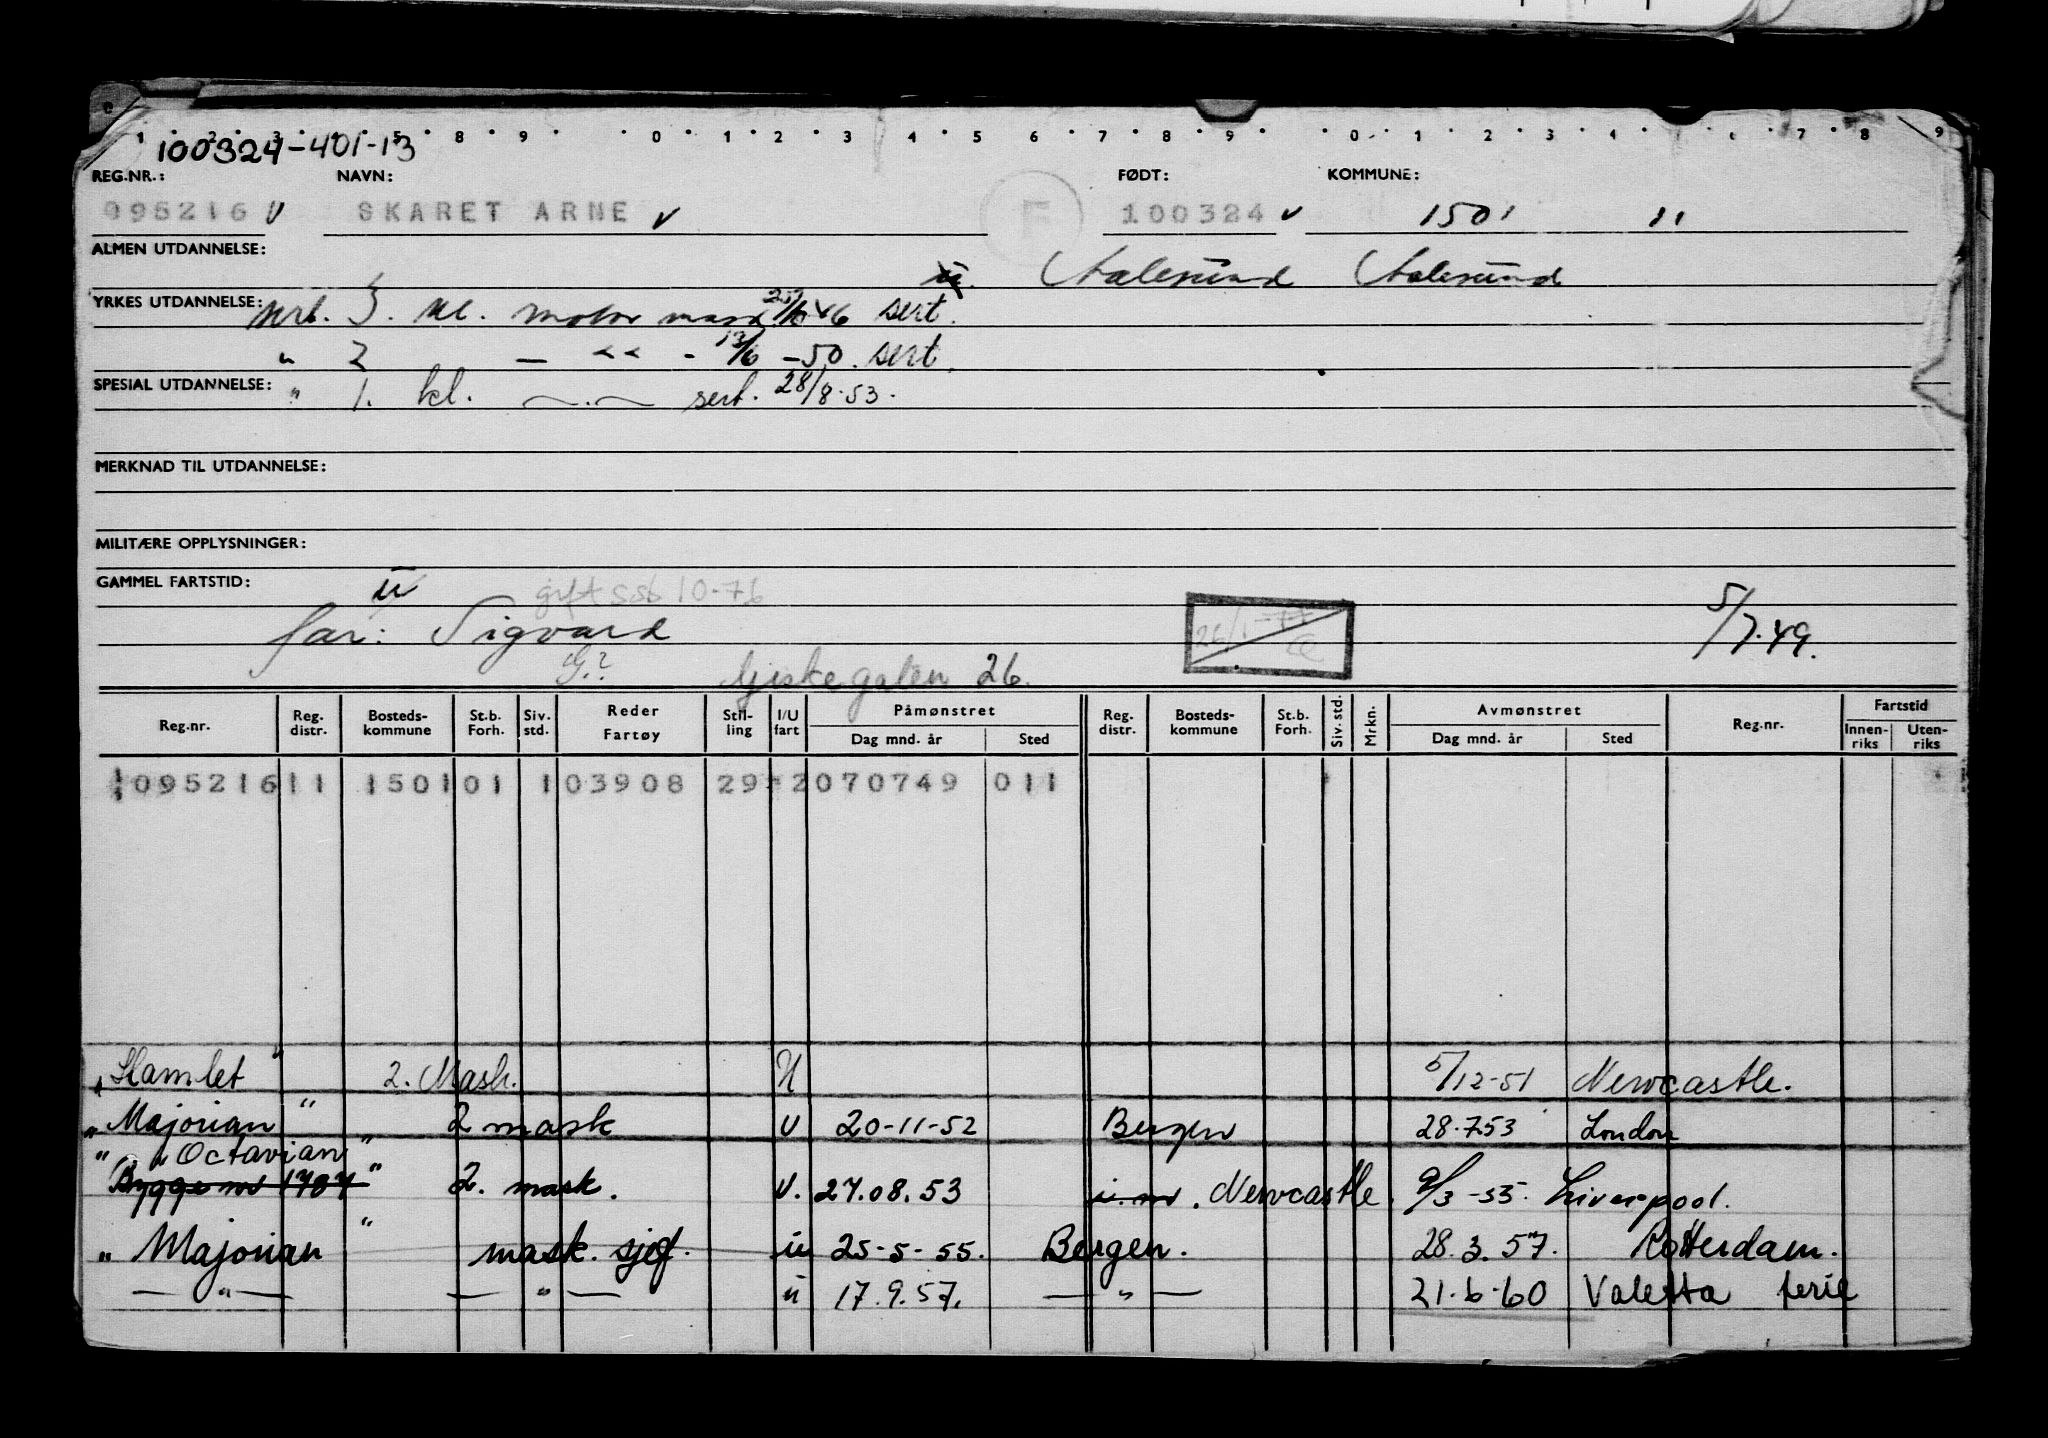 1 2 3 4 5 8 9 0 1 2 3 4 5 6 7 8 9 0 1 2 3 4 5 6 7 8 9
100324-401-13
REG.NR.: NAVN: FØDT: KOMMUNE:
095216 v SKARET ARNE v F 100324 v 1501 11
ALMEN UTDANNELSE:
Aalesund Aalesund
YRKES UTDANNELSE: 3. kl. motor mask 46 sert.
" 2 — " - 13/6 -50. sert.
SPESIAL UTDANNELSE: " 1. kl. —.— sert. 28/8.53.
MERKNAD TIL UTDANNELSE:
MILITÆRE OPPLYSNINGER:
GAMMEL FARTSTID: ü gift ssb 10-76
far: Sigvard 5/7.49.
G.? 26.
Reg.nr. Reg. distr. Bosteds- kommune St.b. Forh. Siv. std. Reder Fartøy Stil- ling I/U fart Påmønstret Dag mnd. år Sted Reg. distr. Bosteds- kommune St.b. Forh. Siv. std. Mrkn. Avmønstret Dag mnd. år Sted Reg.nr. Fartstid Innen- riks Uten- riks
095216 11 1501 01 1 03908 29 2 070749 011
"Hamlet" 2. Mask. U 5/12-51 Newcastle.
"Majorian" 2 mask U 20-11-52 Bergen 28.7.53 London
" "Octavian"
Bygge nr 1787" 2. mask. U. 27.08.53 u.nv. Newcastle. 9/3-55. Liverpool.
"Majorian" mask. sjef. ü 25-5-55. Bergen. 28.3.57. Rotterdam.
— " — — " — ü 17.9.57. — " — 21.6.60 Valetta ferie